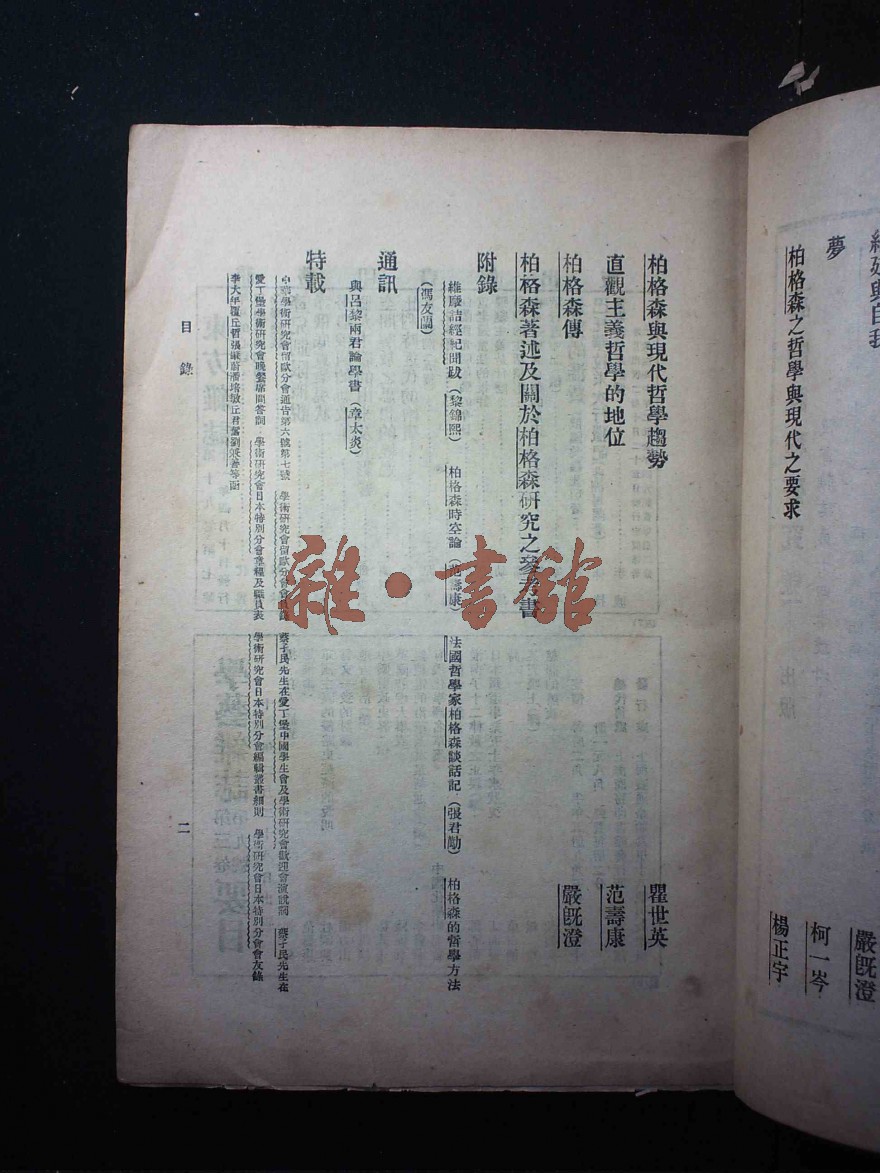 夢
柯一岑
柏格森之哲學與現代之要求
楊正宇
嚴旣澄
柏格森與現代哲學趨勢
瞿世英
直觀主義哲學的地位
范壽康
柏格森傳
嚴旣澄
柏格森著述及關於柏格森研究之參考書
附錄
維摩詰經紀聞跋(黎錦熙) 柏格森時空論(范壽康) 法國哲學家柏格森談話記(張君勱) 柏格森的哲學方法
(馮友蘭)
通訊
與呂黎兩君論學書(章太炎)
特載
中華學術研究會留歐分會通告第六號第七號 學術研究會留歐分會會員錄 蔡孑民先生在愛丁堡中國學生會及學術研究會歡迎會演說詞 蔡孑民先生在
愛丁堡學術研究會晚餐席間答詞 學術研究會日本特別分會章程及職員表 學術研究會日本特別分會編輯叢書細則 學術研究會日本特別分會會友錄
目錄
二
雜·書館